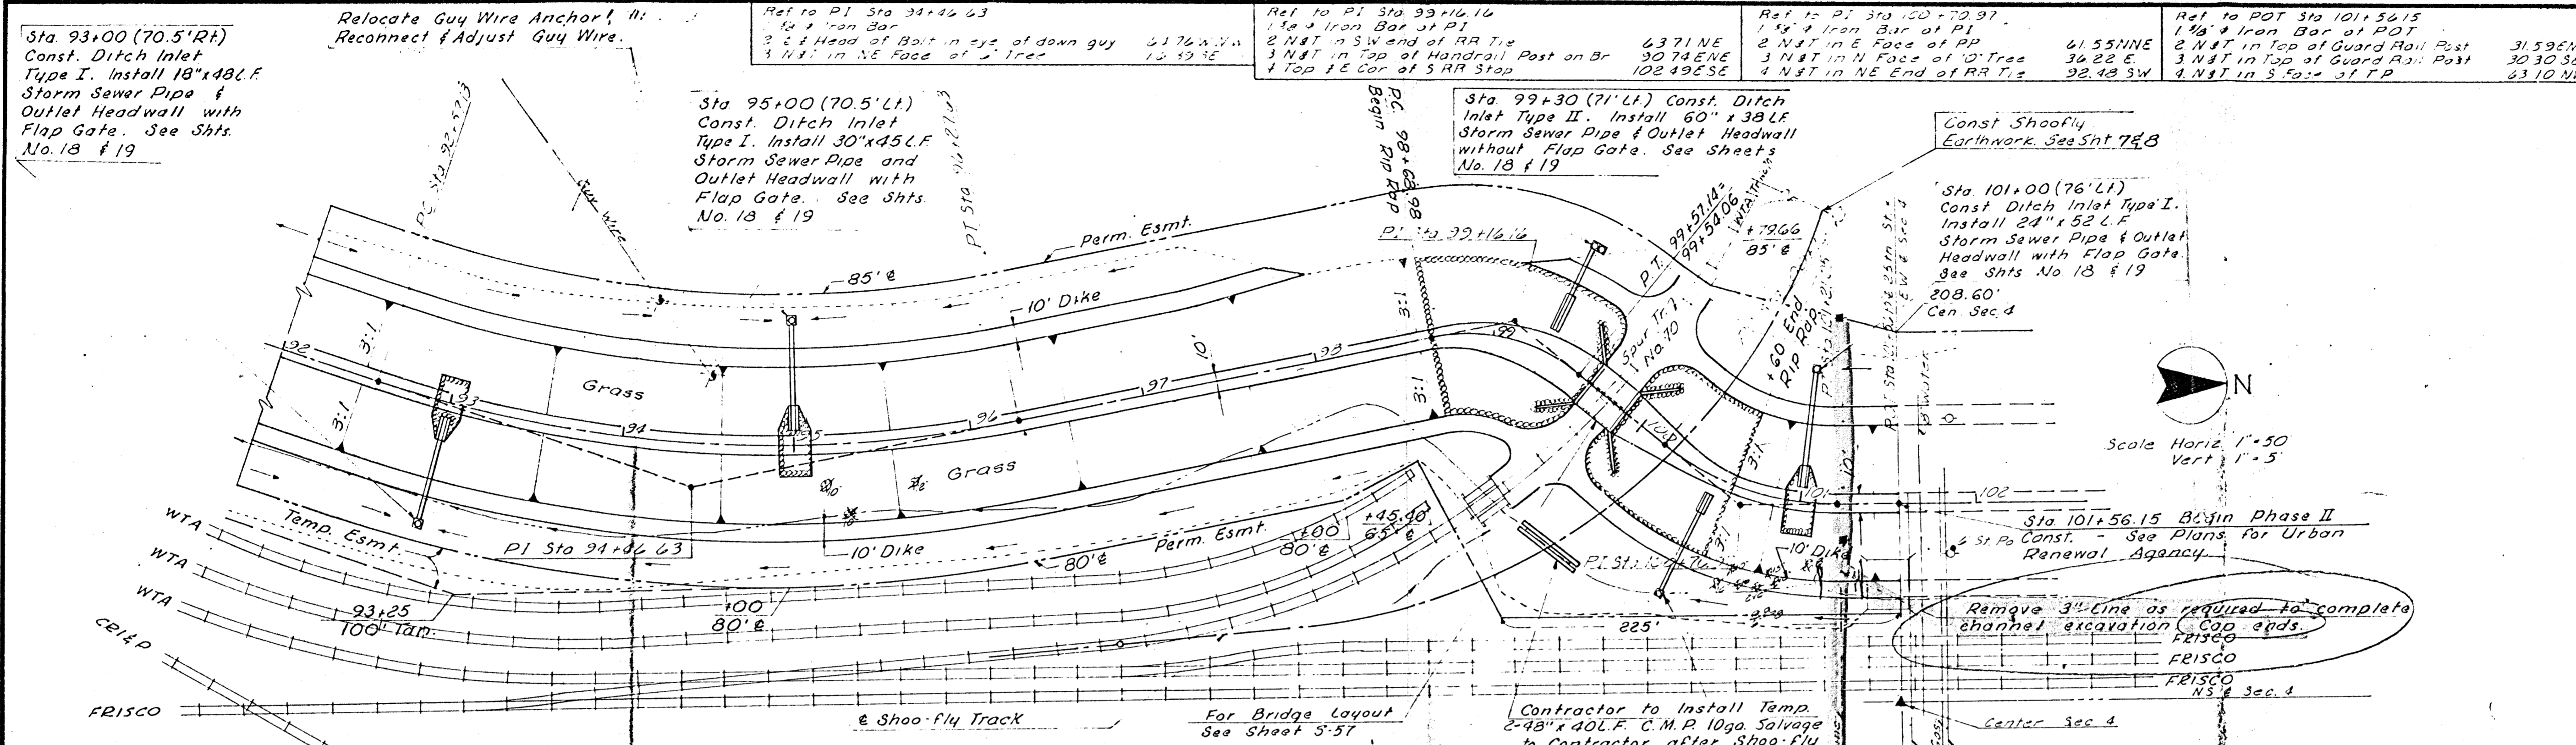 Sta. 93+00 (70.5' Rt)
Const. Ditch Inlet
Type I. Install 18"x48 L.F.
Storm Sewer Pipe &
Outlet Headwall with
Flap Gate. See Shts.
No. 18 & 19
Relocate Guy Wire Anchor!
Reconnect & Adjust Guy Wire.
Ref to PI Sta 94+46.63
Iron Bar
Head of Bolt in eye of down guy
3 N&T in NE Face of Tree
Ref to PI Sta. 99+16.16
1 5/8" ϕ Iron Bar at PI
2 N&T in SW end of RR Tie 63.71 NE
3 N&T in Top of Handrail Post on Br 90.74 ENE
4 Top SE Cor of S RR Stop 102.49 ESE
Ref. to PI Sta 100+70.97
1 5/8" ϕ Iron Bar at PI
2 N&T in E Face of PP 61.55 NNE
3 N&T in N Face of "O" Tree 36.22 E.
4 N&T in NE End of RR Tie 92.48 SW
Ref to POT Sta 101+56.15
1 5/8" ϕ Iron Bar at POT
2 N&T in Top of Guard Rail Post 31.59
3 N&T in Top of Guard Rail Post 30.30
4 N&T in S. Face of TP 63.10
Sta. 95+00 (70.5' Lt.)
Const. Ditch Inlet
Type I. Install 30"x45 L.F.
Storm Sewer Pipe and
Outlet Headwall with
Flap Gate. See Shts.
No. 18 & 19
Sta. 99+30 (71' Lt.) Const. Ditch
Inlet Type II. Install 60" x 38 L.F.
Storm Sewer Pipe & Outlet Headwall
without Flap Gate. See Sheets
No. 18 & 19
Const Shoofly
Earthwork. See Sht 7&8
Sta. 101+00 (76' Lt)
Const Ditch Inlet Type I.
Install 24" x 52 L.F.
Storm Sewer Pipe & Outlet
Headwall with Flap Gate.
See Shts No. 18 & 19
208.60'
Cen. Sec. 4
Guy Wire
P.C. 98+68.98
Begin Rip Rap
PI Sta 99+16.16
P.T. 99+57.14=
99+54.06
+79.66
85' ℄
Perm. Esmt.
85' ℄
10' Dike
Spur Tr.
No. 70
+60 End
Rip Rap
92
3:1
3:1
93
94
Grass
95
96
97
10'
98
99
3:1
3:1
100
3:1
3:1
10'
101
102
Grass
N
Scale Horiz. 1"=50'
Vert. 1"=5'
WTA
WTA
WTA
Temp. Esmt.
PI Sta 94+46.63
10' Dike
80' ℄
Perm. Esmt.
+00
80' ℄
+45.40
65' ℄
10' Dike
Sta. 101+56.15 Begin Phase II
Const. - See Plans for Urban
Renewal Agency
93+25
100' Tan.
+00
80' ℄
225'
Remove 3" Line as required to complete
channel excavation Cap ends.
FRISCO
FRISCO
FRISCO
NS ℄ Sec. 4
Center Sec 4
CRI&P
FRISCO
℄ Shoo-fly Track
For Bridge Layout
See Sheet S-57
Contractor to Install Temp.
2-48" x 40 L.F. C.M.P. 10ga. Salvage
to Contractor after Shoo-fly